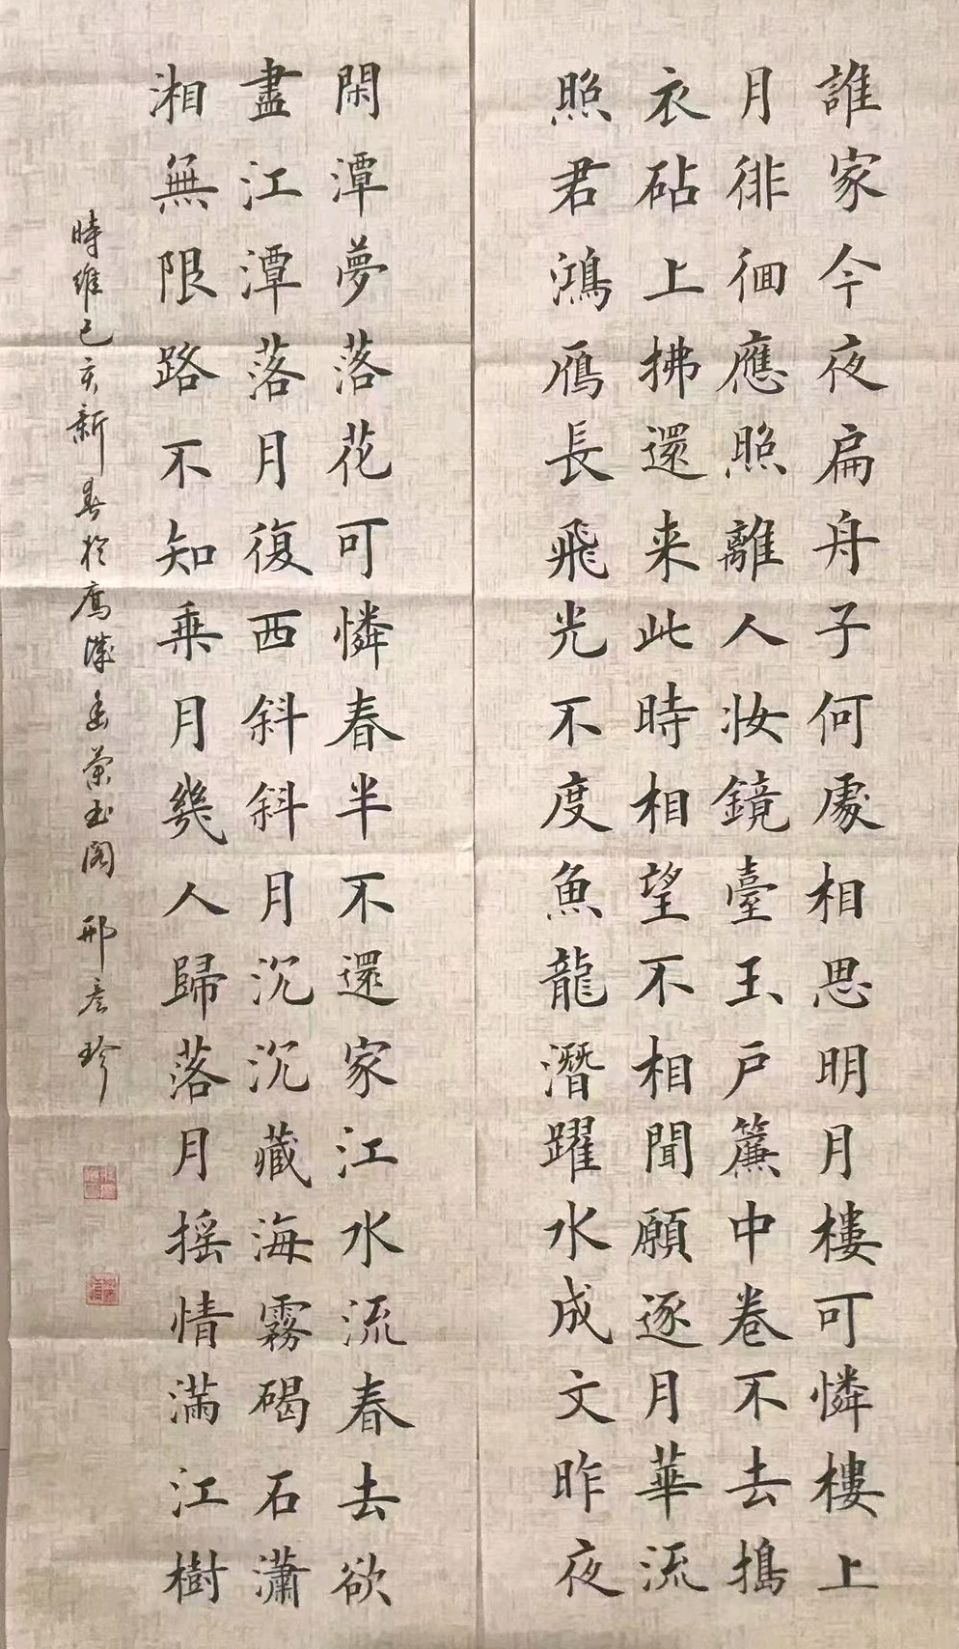 誰家今夜扁舟子何處相思明月樓可憐樓上
月徘徊應照離人妆鏡臺玉户簾中卷不去搗
衣砧上拂還来此時相望不相聞願逐月華流
照君鴻雁長飛光不度魚龍潛躍水成文昨夜
閑潭夢落花可憐春半不還家江水流春去欲
盡江潭落月復西斜斜月沉沉藏海霧碣石瀟
湘無限路不知乘月幾人歸落月摇情滿江樹
時維己亥新春於鷹潭玉閣邢彦珍